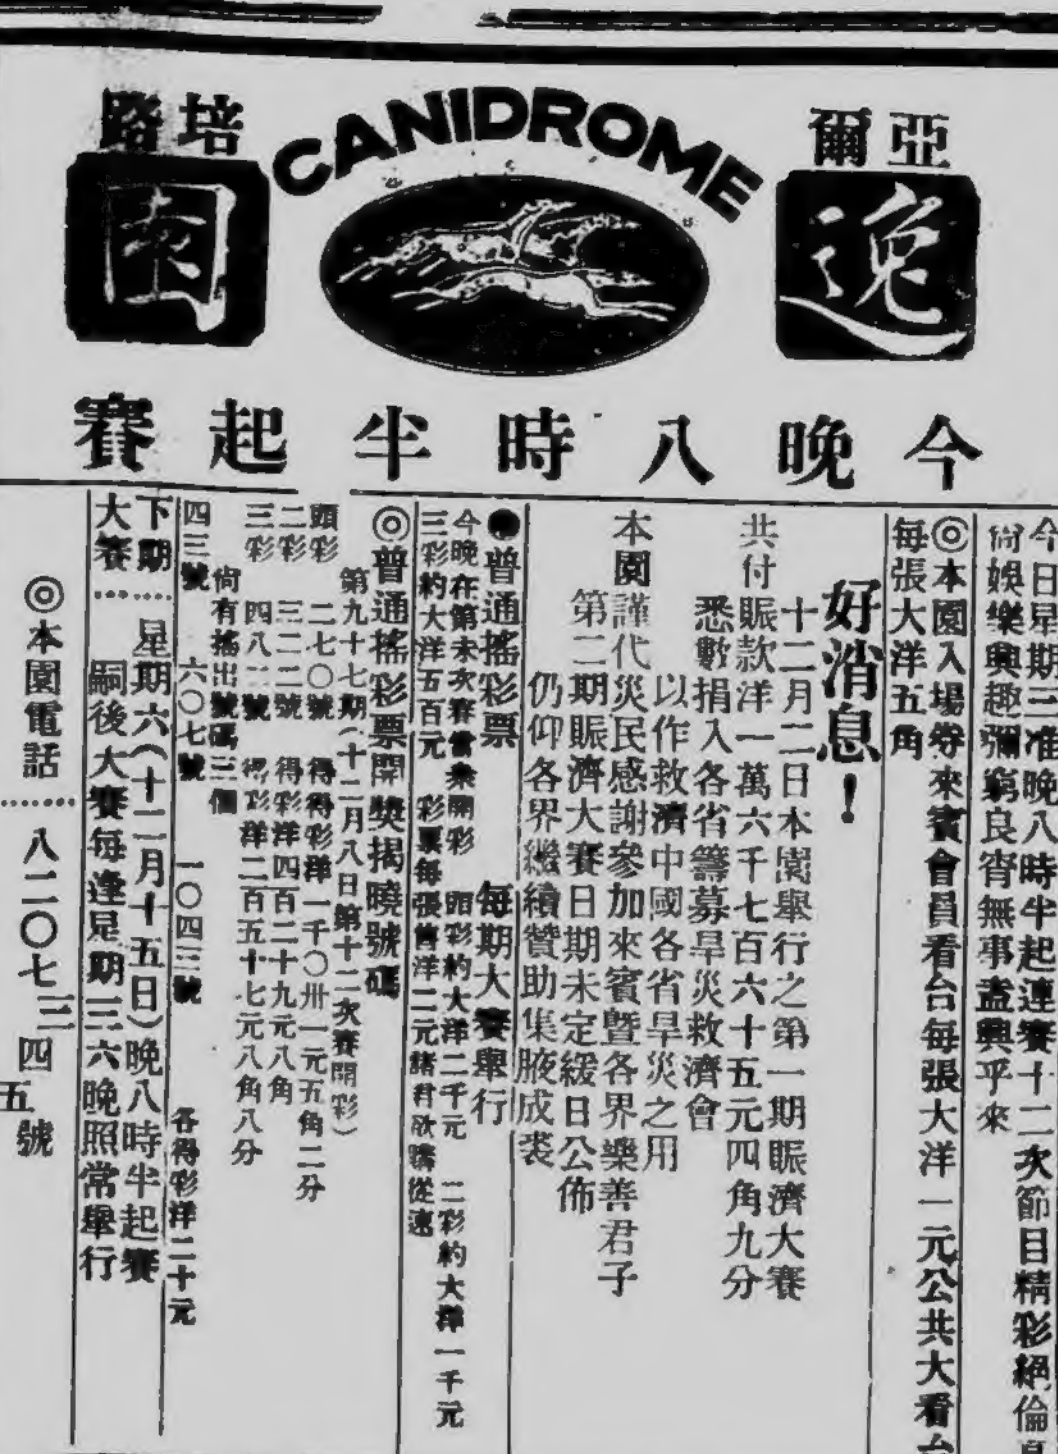 亞爾
培路
CANIDROME
逸園
今晚八時半起賽
今日星期三准晚八時半起連賽十二次節目精彩絕倫
尙娛樂興趣彌窮良宵無事盍興乎來
◎本園入場券來賓會員看台每張大洋一元公共大看台
每張大洋五角
好消息！
十二月二日本園舉行之第一期賑濟大賽
共付賑款洋一萬六千七百六十五元四角九分
悉數捐入各省籌募旱災救濟會
以作救濟中國各省旱災之用
本園謹代災民感謝參加來賓暨各界樂善君子
第二期賑濟大賽日期未定緩日公佈
仍仰各界繼續贊助集腋成裘
●普通搖彩票 每期大賽舉行
今晚在第末次賽當衆開彩 頭彩約大洋二千元 二彩約大洋一千元
三彩約大洋五百元 彩票每張售洋二元諸君欲購從速
◎普通搖彩票開獎揭曉號碼
第九十七期(十二月八日第十二次賽開彩)
頭彩 二七〇號 得彩洋一千〇卅一元五角二分
二彩 三二二號 得彩洋四百二十九元八角
三彩 四八二號 得彩洋二百五十七元八角八分
尙有搖出號碼三個
四三號 六〇七號 一〇四三號 各得彩洋二十元
下期 星期六(十二月十五日)晚八時半起賽
大賽 嗣後大賽每逢星期三六晚照常舉行
◎本園電話 八二〇七三 四五號